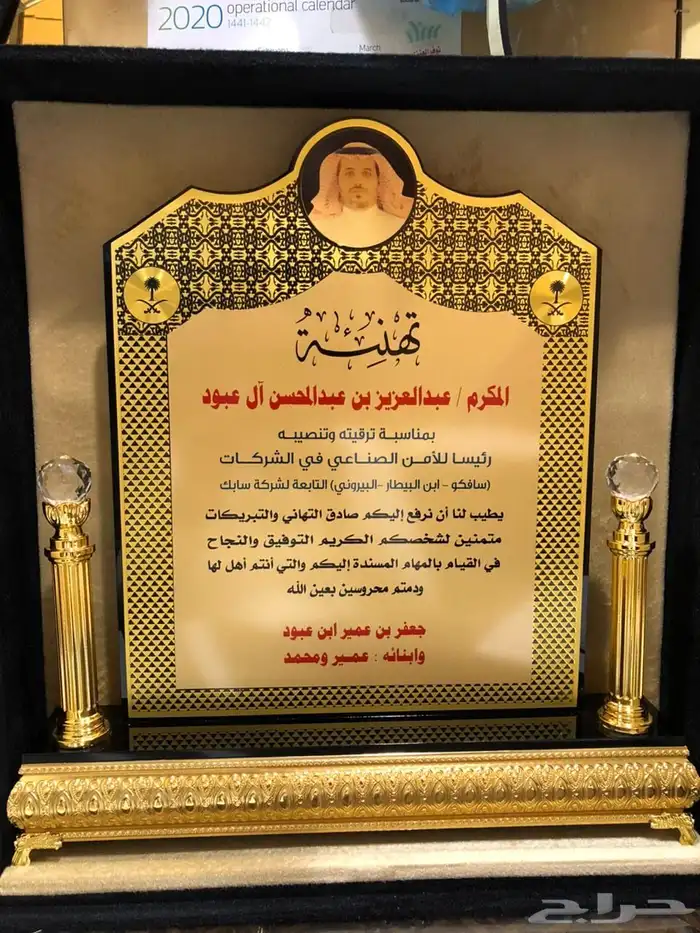 2020 operational calendar
1441-1442
March
تهنئة
المكرم / عبدالعزيز بن عبدالمحسن آل عبود
بمناسبة ترقيته وتنصيبه
رئيسا للأمن الصناعي في الشركات
(سافكو - ابن البيطار -البيروني) التابعة لشركة سابك
يطيب لنا أن نرفع إليكم صادق التهاني والتبريكات
متمنين لشخصكم الكريم التوفيق والنجاح
في القيام بالمهام المسندة إليكم والتي أنتم أهل لها
ودمتم محروسين بعين الله
جعفر بن عمير ابن عبود
وابنائه : عمير ومحمد
حراج